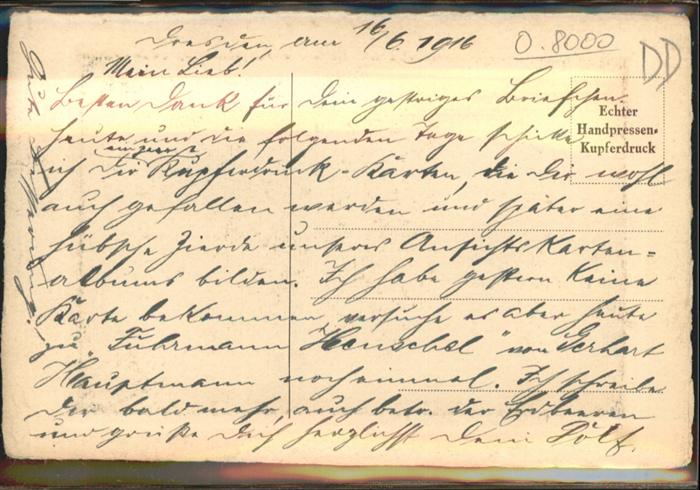 Dresden, am 16/6. 1916
O.8000
DD
Mein Lieb!
Echter
Handpressen-
Kupferdruck
Besten Dank für Dein gestriges Briefchen.
Heute und die folgenden Tage schicke
ich Dir Kupferdruck-Karten, die Dir wohl
auch gefallen werden und später eine
hübsche Zierde unseres Ansichtskarten-
albums bilden. Ich habe gestern keine
Karte bekommen, versuche es aber heute
zu "Fuhrmann Henschel" von Gerhart
Hauptmann nocheinmal. Ich schreibe
Dir bald mehr, auch betr. der Erdbeeren
und grüße Dich herzlichst Dein Rolf.